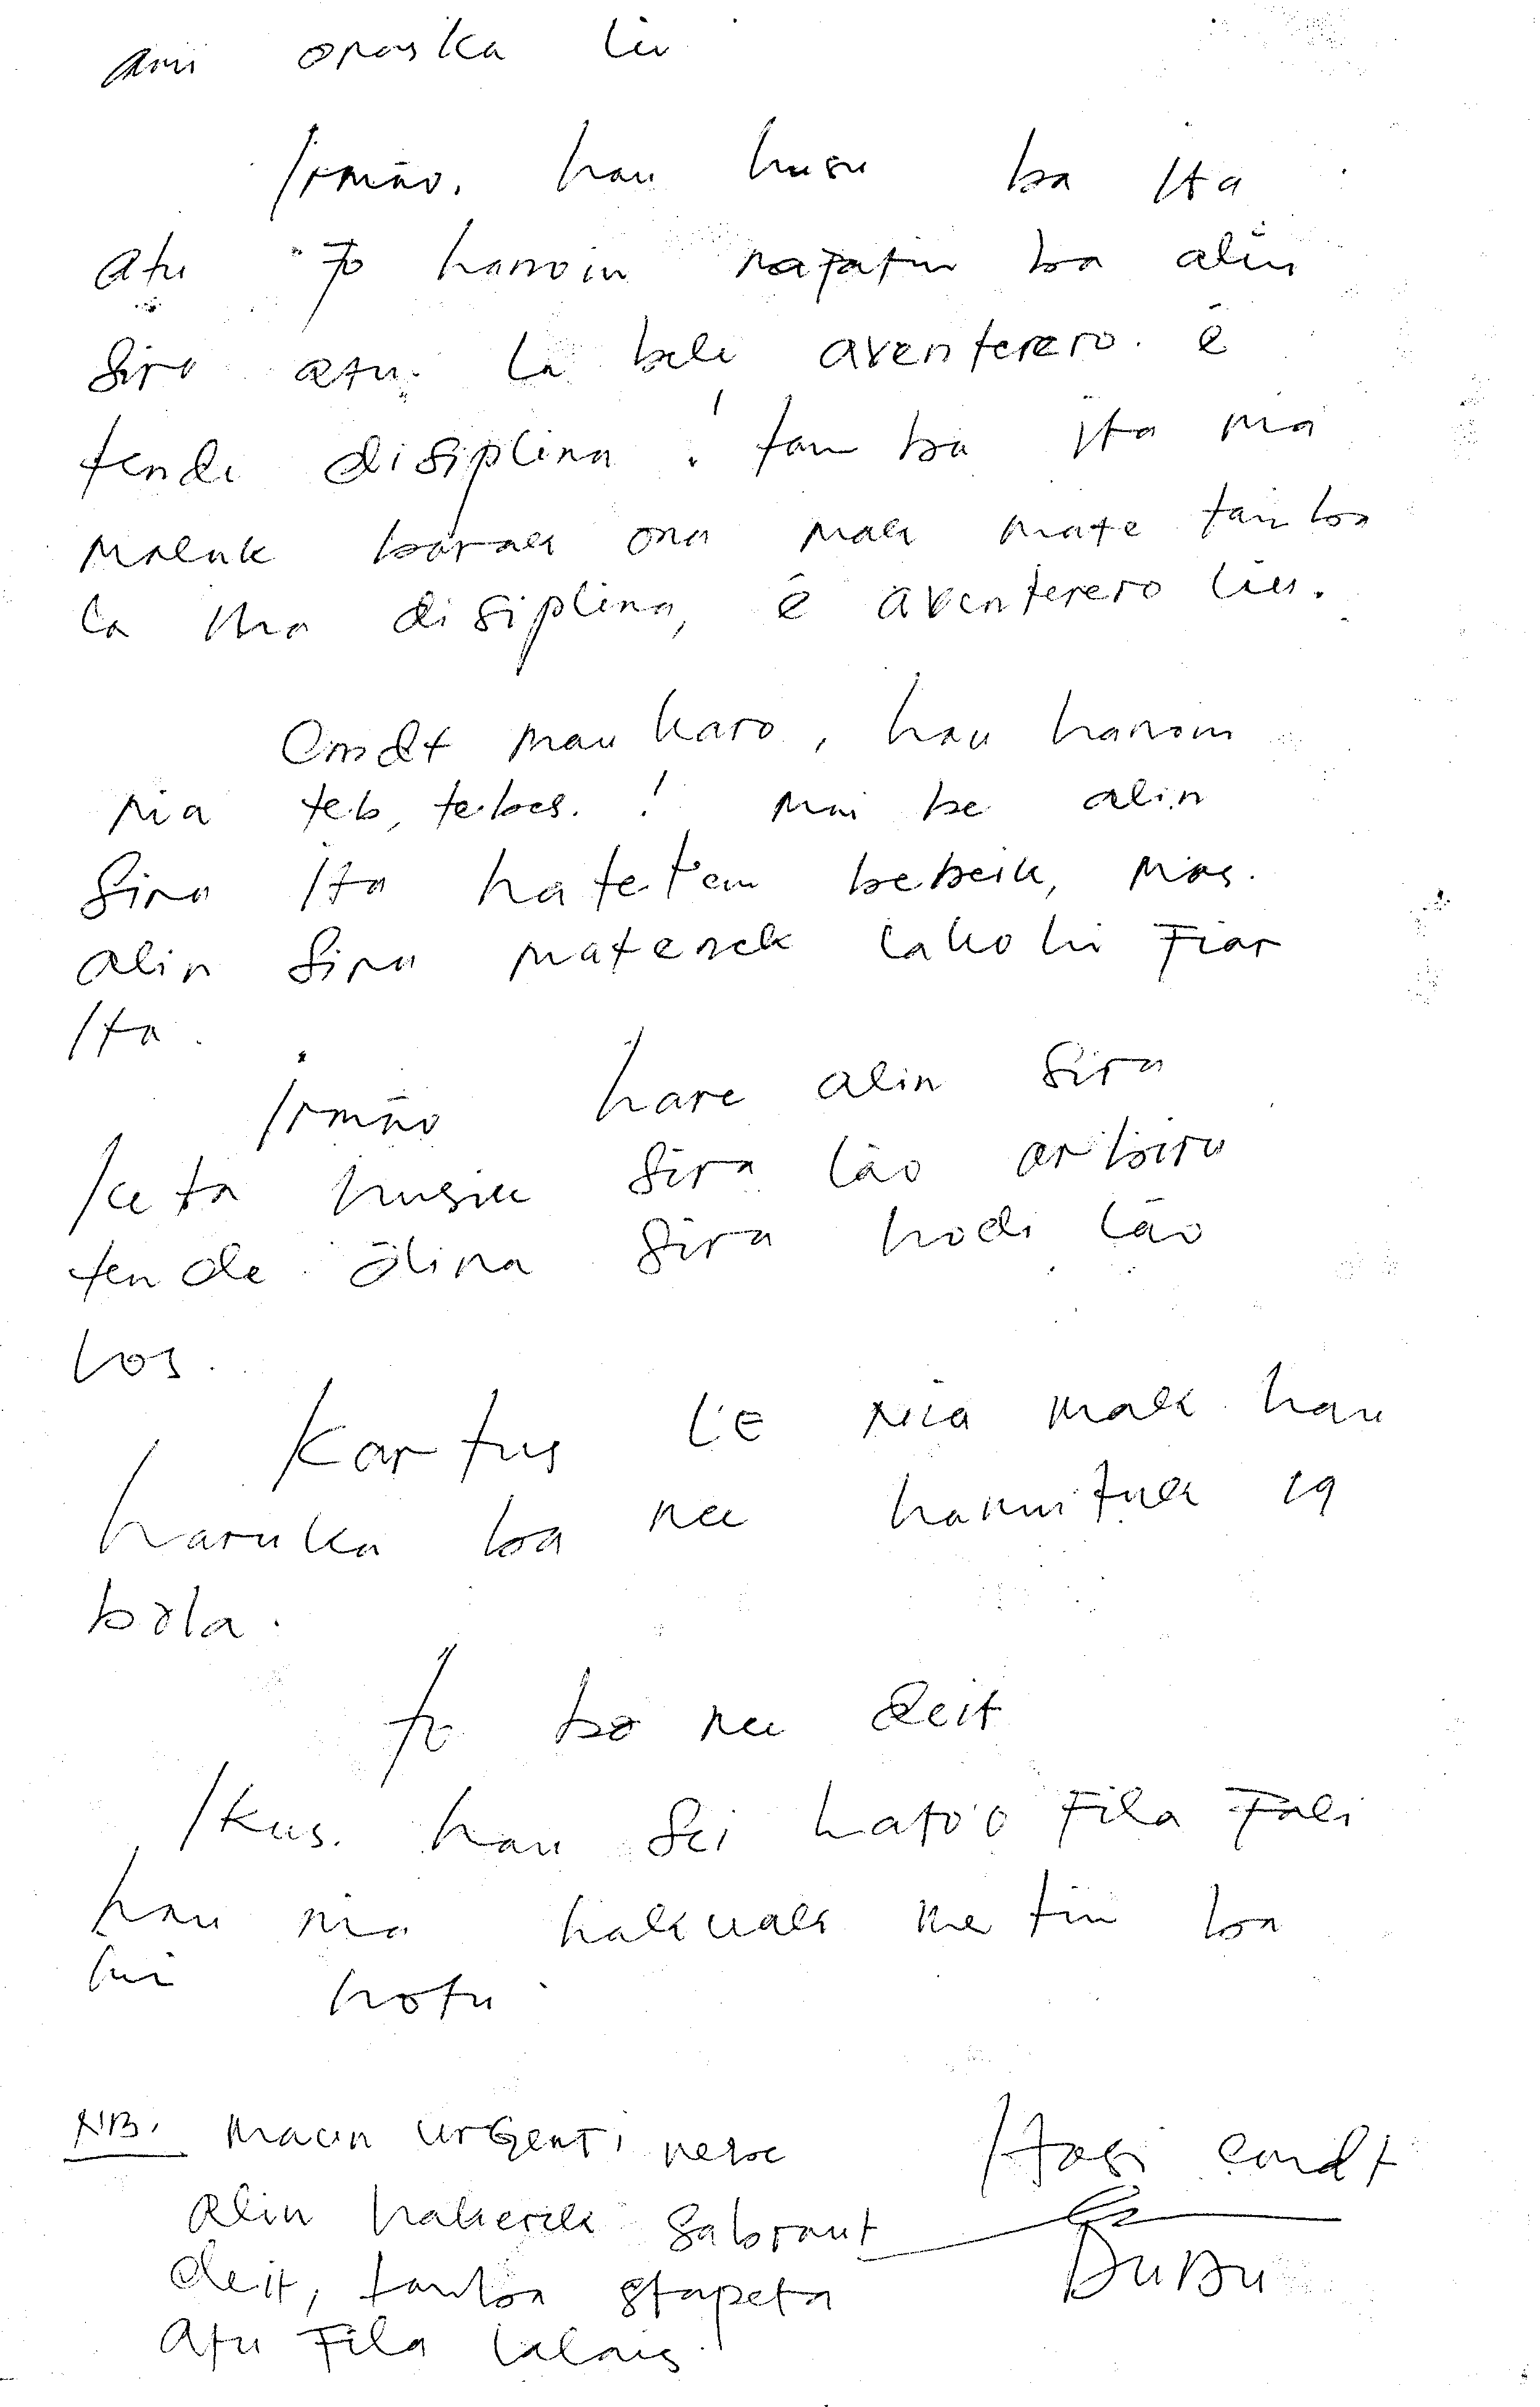 ami
Irmão, hau husu ba Ita
atu fo hanoin nafatin ba alin
sira atu. la bele aventerero. é
tende disiplina ! tan ba ita nia
maluk barak ona mak mate tan ba
la iha disiplina, é aventerero liu.
Cmdt mau karo, hau hanoin
nia teb, tebes. ! Mai be alin
sira Ita hateten bebeik, mas.
alin sira matenek lakohi Fiar
Ita.
Irmão hare alin sira
keta husik sira lão arbiru
tende dina sira hodi lão
los.
Kartus LE nia mak hau
haruka ba ne hamutuk 19
bola.
to ba ne deit
Ikus. hau sei hato'o Fila Fali
hau nia hakuak metin ba
imi hotu
NB. maun urGenti nebe
alin hakerek sabraut
deit, tanba stapeta
atu Fila lalais.
Cmdt
DUDU